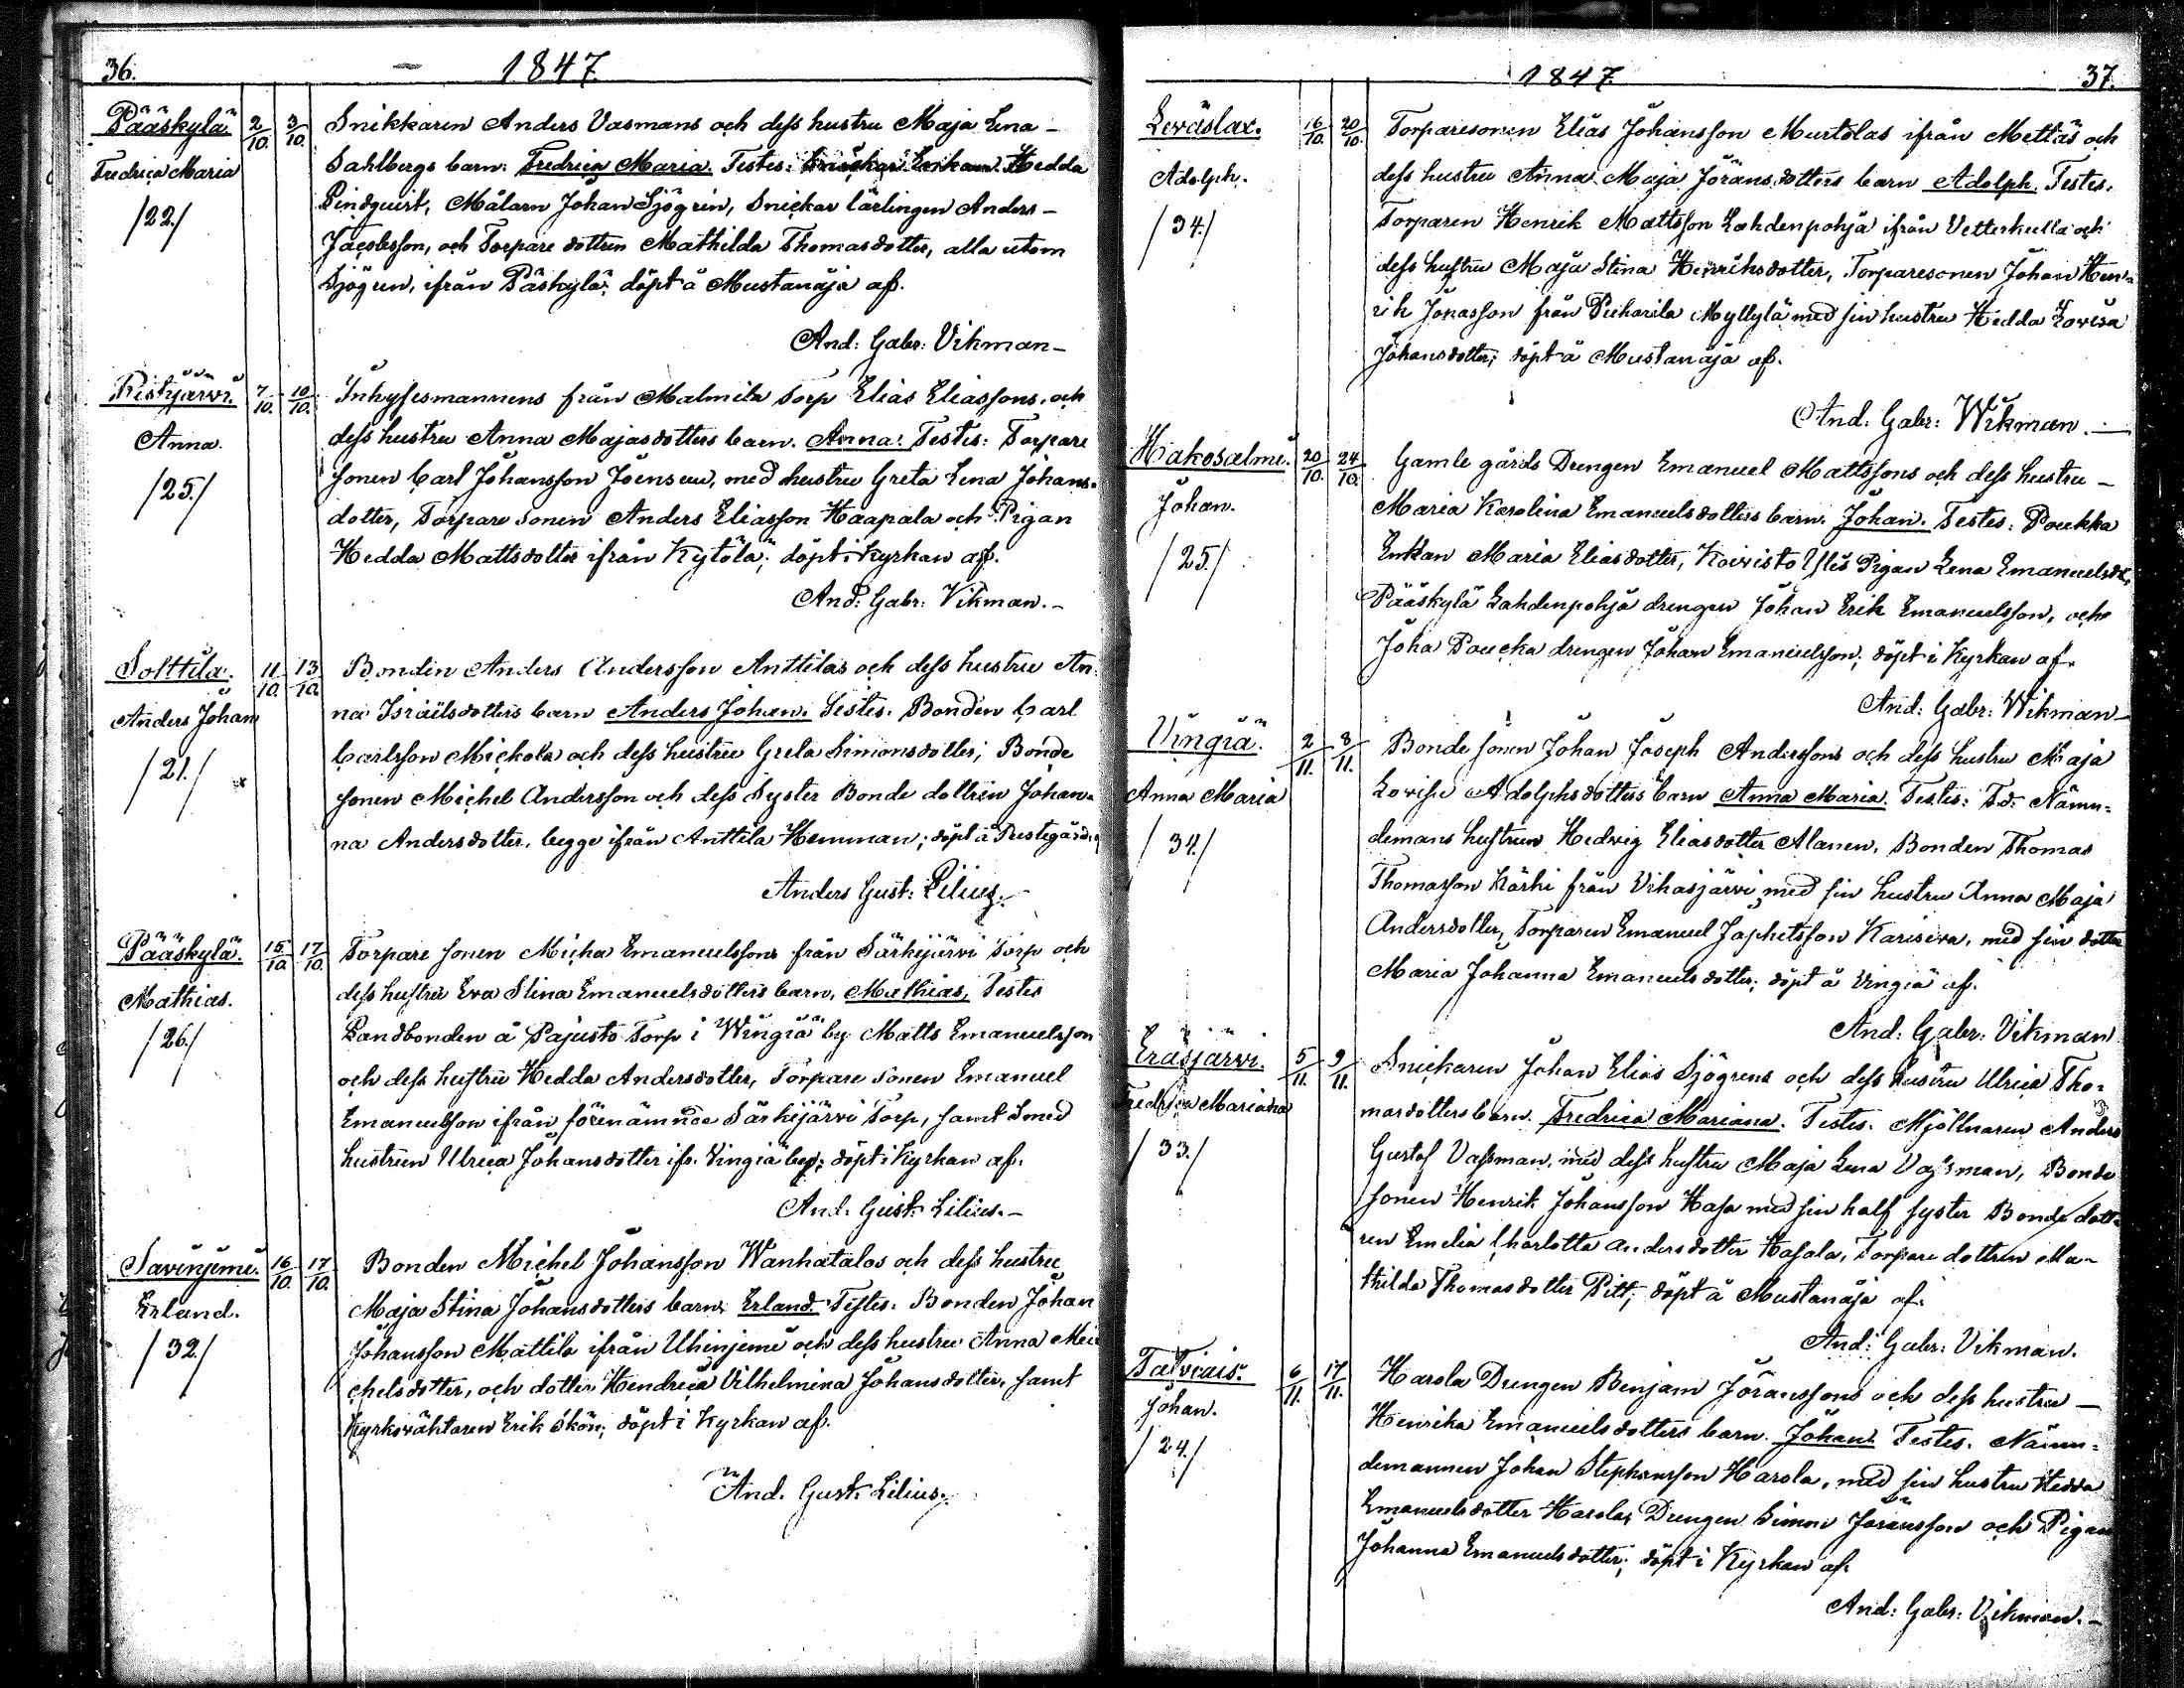 36. 1847.
Pääskylä 2/10. 3/10. Snikkaren Anders Vasmans och dess hustru Maja Lena
Fredrica Maria Sahlbergs barn: Fredrica Maria. Testes: Enkan Hedda
/22./ Lindquist, Målarn Johan Sjögrin, Snickar lärlingen Anders
Jacobsson, och Torpare dottren Mathilda Thomasdotter, alla utom
Sjögren, ifrån Pääskylä; döpt å Mustanäja af.
And: Gabr: Vikman
Ristijärvi. 7/10. 10/10. Inhysesmannens från Malmila Torp Elias Eliassons, och
Anna. dess hustru Anna Majasdotters barn. Anna. Testes: Torpare
/25./ sonen Carl Johansson Joensuu, med hustru Greta Lena Johans-
dotter, Torpare sonen Anders Eliasson Haapala och Pigan
Hedda Mattsdotter ifrån Kytölä; döpt i Kyrkan af.
And: Gabr: Vikman.
Solttila. 11/10. 13/10. Bonden Anders Andersson Anttilas och dess hustru An-
Anders Johan na Israelsdotters barn Anders Johan. Testes. Bonden Carl
/21./ Carlsson Mickola och dess hustru Greta Simonsdotter; Bonde
sonen Michel Andersson och dess Syster Bonde dottren Johan-
na Andersdotter, begge ifrån Anttila Hemman; döpt å Prestegården
Anders Gust: Lilius.
Pääskylä. 15/10. 17/10. Torpare sonen Micka Emanuelssons från Särkijärvi Torp och
Mathias. dess hustru Eva Stina Emanuelsdotters barn, Mathias, Testes
/26./ Landbonden å Pajusto Torp i Wingiä by Matts Emanuelsson
och dess hustru Hedda Andersdotter, Torpare sonen Emanuel
Emanuelsson ifrån förenämnde Särkijärvi Torp, samt Smed
hustrun Ulrica Johansdotter ifr. Vingiä by; döpt i Kyrkan af.
And. Gust. Lilius.
Savinjemi. 16/10. 17/10. Bonden Michel Johansson Wanhatalos och dess hustru
Erland. Maja Stina Johansdotters barn; Erland Testes. Bonden Johan
/32./ Johansson Mattila ifrån Uhinjemi och dess hustru Anna Mi-
chelsdotter, och dotter Hendrica Vilhelmina Johansdotter, samt
Kyrkoväktaren Erik Skön; döpt i Kyrkan af.
And. Gust. Lilius.
1847. 37.
Leväslax. 16/10. 20/10. Torparesonen Elias Johansson Murtolas ifrån Mettäs och
Adolph. dess hustru Anna Maja Jöransdotters barn Adolph. Testes.
/34./ Torparen Henrik Mattsson Lahdenpohja ifrån Vetterkulla och
dess hustru Maja Stina Henriksdotter, Torparesonen Johan Hen-
rik Jonasson från Puharila Myllylä med sin hustru Hedda Lovisa
Johansdotter; döpt å Mustanäja af.
And: Gabr: Wikman.
Hakosalmi. 20/10. 24/10. Gamle gårds Drengen Emanuel Mattssons och dess hustru
Johan. Maria Karolina Emanuelsdotters barn. Johan. Testes: Poukka
/25./ Enkan Maria Eliasdotter, Koivisto Pigan Lena Emanuelsd.
Pääskylä Lahdenpohja drengen Johan Erik Emanuelsson, och
Joha Poucka drengen Johan Emanuelsson; döpt i Kyrkan af.
And: Gabr: Wikman
Vingiä. 2/11. 8/11. Bonde sonen Johan Joseph Anderssons och dess hustru Maja
Anna Maria Lovisa Adolphsdotters barn Anna Maria. Testes: F.d. Nämn-
/34./ demans hustrun Hedvig Eliasdotter Alanen, Bonden Thomas
Thomasson Kärki från Vihasjärvi med sin hustru Anna Maja
Andersdotter, Torparen Emanuel Japhetsson Karisiva, med sin dotter
Maria Johanna Emanuelsdotter; döpt å Vingiä af.
And: Gabr: Vikman
Eräsjärvi. 5/11. 9/11. Snickaren Johan Elias Sjögrens och dess hustru Ulrica Tho-
Fredrica Mariana masdotters barn. Fredrica Mariana. Testes. Mjöllnaren Anders
/33./ Gustaf Vassman, med dess hustru Maja Lena Vassman, Bonde
sonen Henrik Johansson Hasa med sin half syster Bonde dott-
ren Emelia Charlotta Andersdotter Hasala, Torpare dottren Ma-
thilda Thomasdotter Pitt; döpt å Mustanäja af.
And: Gabr: Vikman.
Talviais. 6/11. 17/11. Harola Drengen Benjam Jöranssons och dess hustru
Johan. Henrika Emanuelsdotters barn. Johan. Testes. Nämn-
/24./ demannen Johan Stephansson Harola, med sin hustru Hedda
Emanuelsdotter Harola, Drengen Simon Jöransson och Pigan
Johanna Emanuelsdotter; döpt i Kyrkan af.
And: Gabr: Vikman.